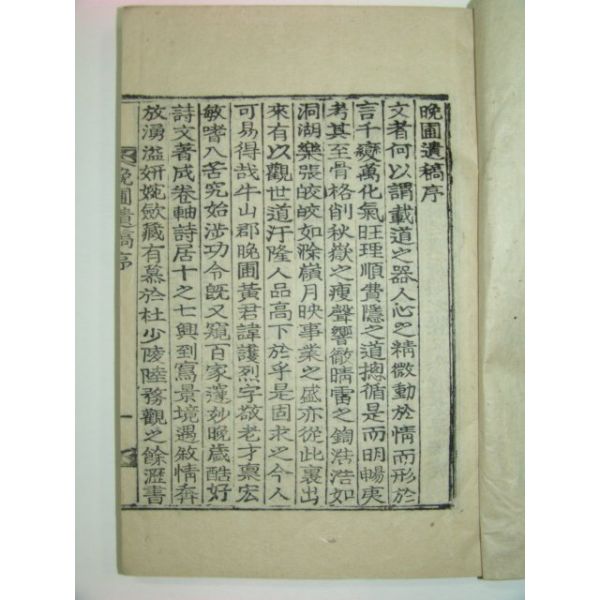 晩圃遺稿序
文者何以謂載道之器人心之精微動於情而形於
言千變萬化氣旺理順費隱之道摠循是而明暢夷
考其至骨格削秋嶽之瘦聲響徹晴雷之鍧浩浩如
洞湖樂張皎皎如滁嶺月映事業之盛亦從此裏出
來有以觀世道汙隆人品高下於乎是固求之今人
可易得哉牛山郡晩圃黃君諱護烈字敬老才稟宏
敏嗜入苦究始涉功令旣又窺百家邃妙晩歲酷好
詩文著成卷軸詩居十之七興到寫景境遇敘情奔
放湧溢姸婉斂藏有慕於杜少陵陸務觀之餘瀝書
晩圃遺稿序
一